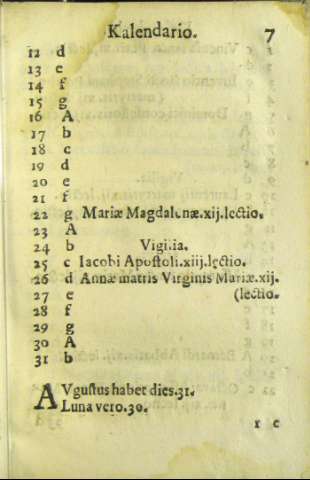 Kalendario. 7
12 d
13 e
14 f
15 g
16 A
17 b
18 c
19 d
20 e
21 f
22 g Mariæ Magdalenæ.xij.lectio.
23 A
24 b Vigilia.
25 c Iacobi Apostoli.xiij.lectio.
26 d Annæ matris Virginis Mariæ.xij.
27 e (lectio.
28 f
29 g
30 A
31 b
AVgustus habet dies.31.
Luna vero.30.
1 c